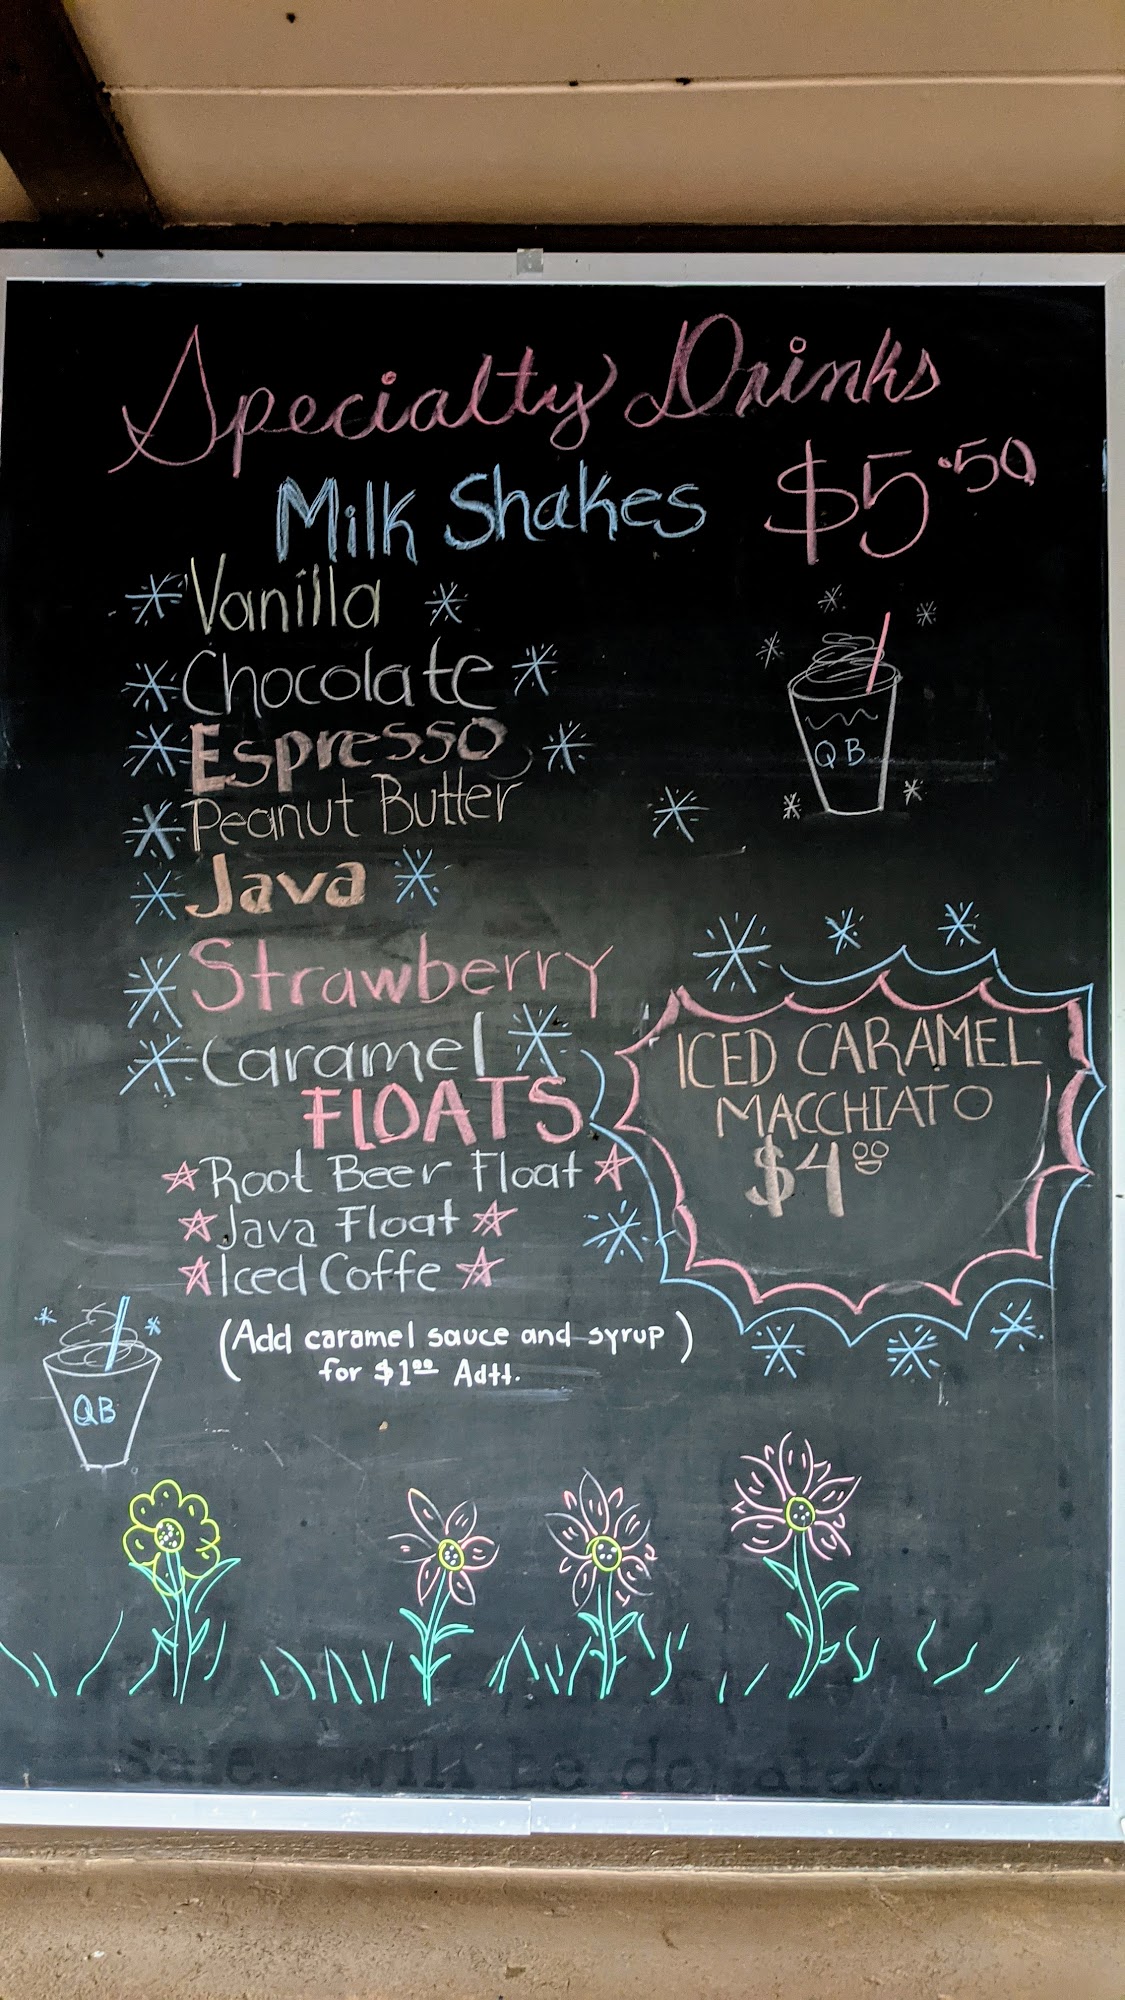 Specialty Drinks
Milk Shakes $5.50
Vanilla
Chocolate
Espresso
Peanut Butter
Java
Strawberry
Caramel
FLOATS
Root Beer Float
Java Float
Iced Coffe
(Add caramel sauce and syrup)
for $1.00 Adtt.
QB
ICED CARAMEL
MACCHIATO
$4.00
QB
will be donated!